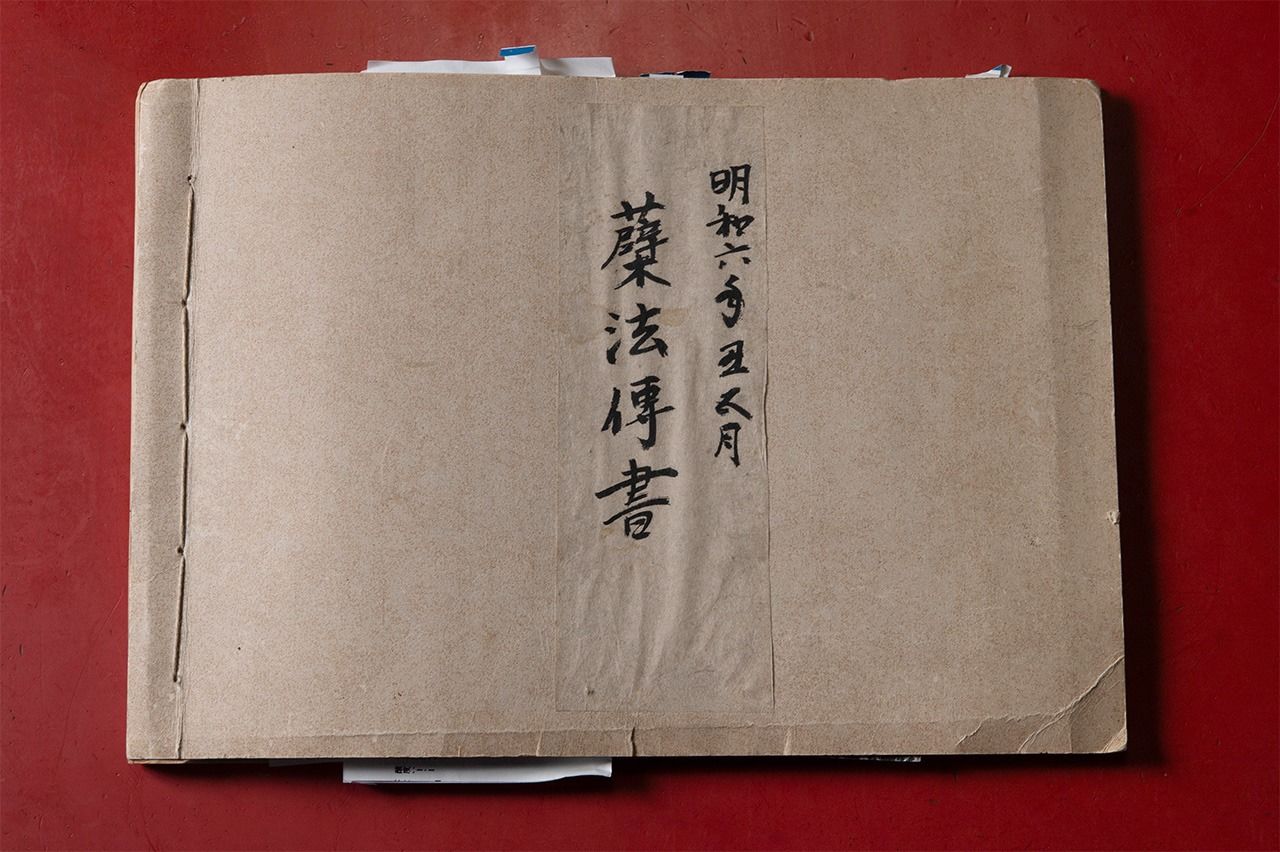 明和六年丑五月
蘗法傳書